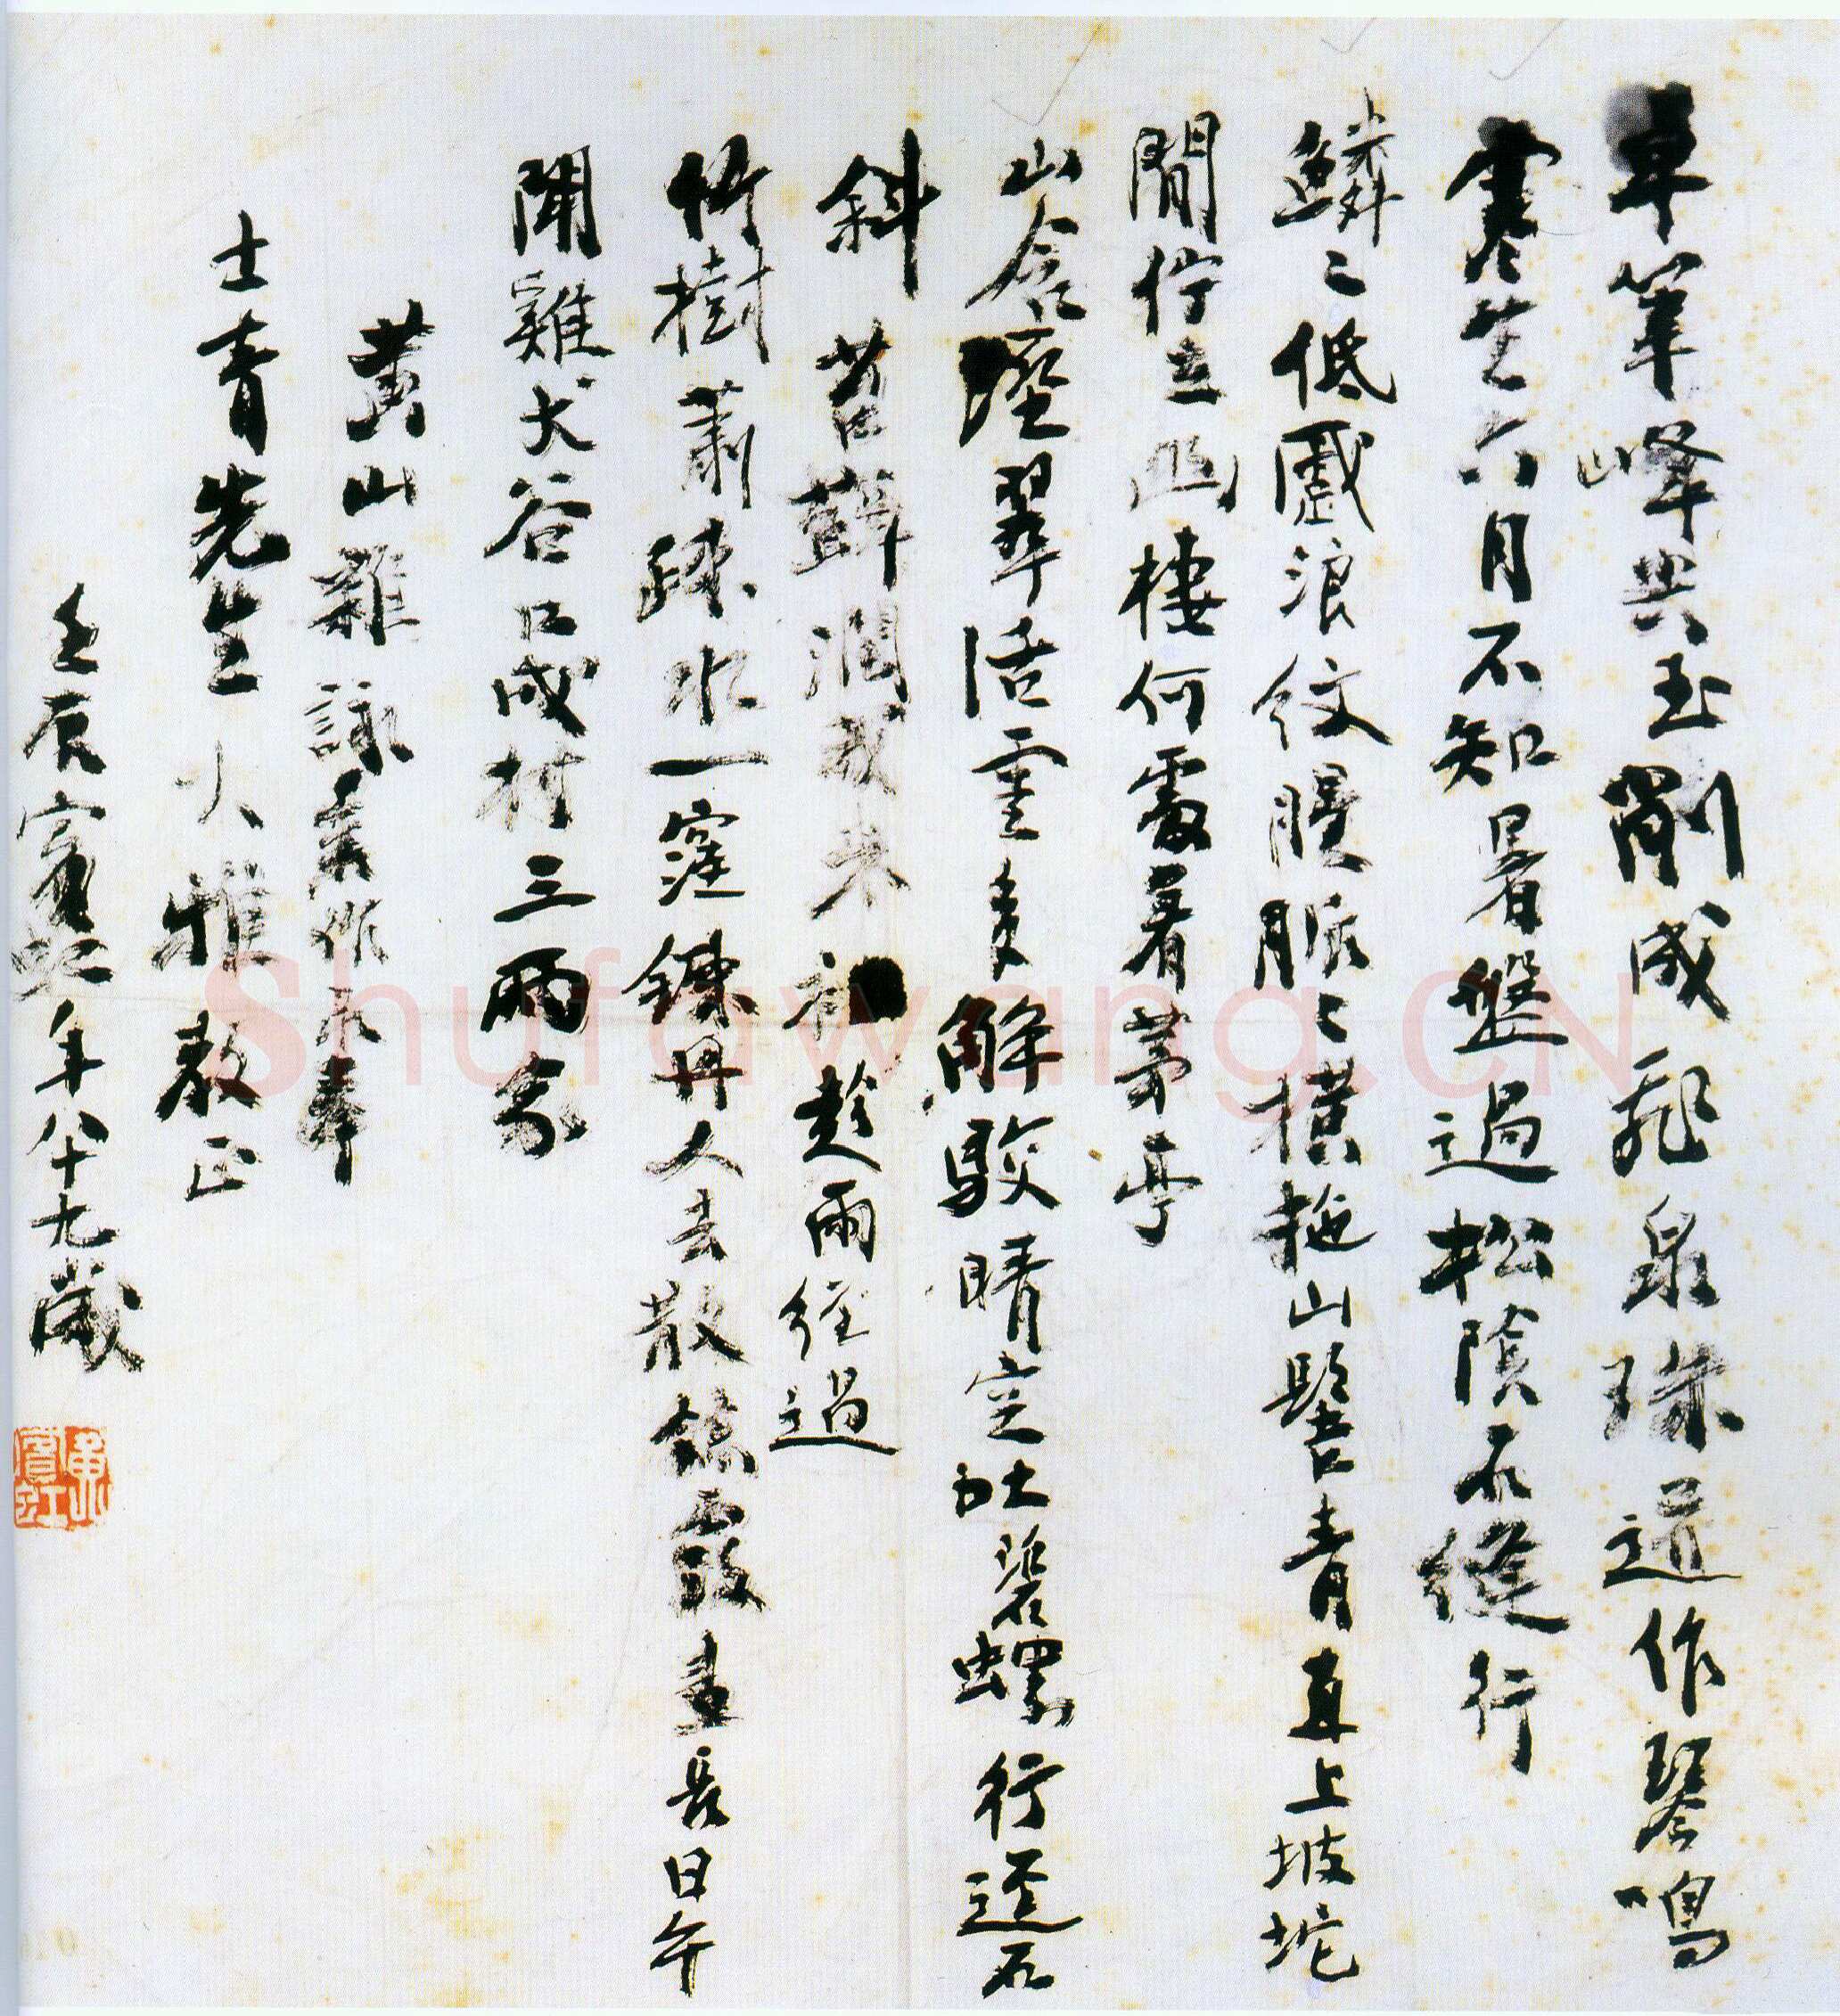 卓筆峰與玉劚成亂泉珠迸作琴鳴
寒生六月不知暑盤過松陰石縫行
鱗〻低戲浪紋脈〻橫拖山髻青直上坡坨
閒佇立幽棲何處著茅亭
山含翠活雲多解駁晴空吐碧螺行逕石
斜苔蘚潤我來初趁雨經過
竹樹蕭疎水一窪鍊丹人去散餘霞晝長日午
聞雞犬谷口成村三兩家
黃山雜詠舊作奉
士青先生大雅教正
壬辰賓虹年八十九歲
黃山賓虹
Shufawang.CN